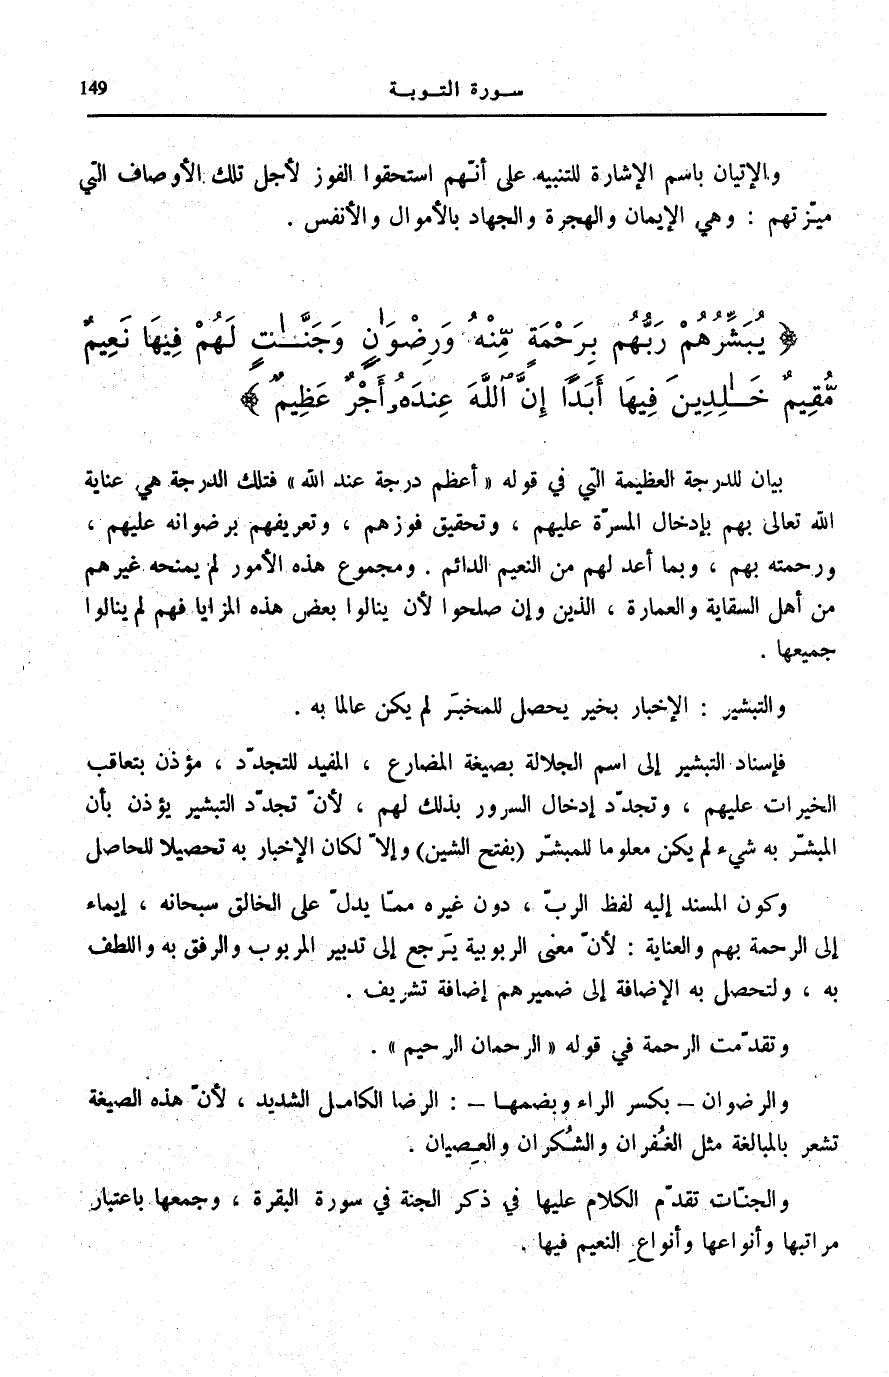 سـورة التـوبـة 149
والإتيان باسم الإشارة للتنبيه على أنّهم استحقوا الفوز لأجل تلك الأوصاف الّتي
ميّزتهم : وهي الإيمان والهجرة والجهاد بالأموال والأنفس .
﴿ يُبَشِّرُهُمْ رَبُّهُم بِرَحْمَةٍ مِّنْهُ وَرِضْوَٰنٍ وَجَنَّـٰتٍ لَهُمْ فِيهَا نَعِيمٌ
مُّقِيمٌ خَـٰلِدِينَ فِيهَا أَبَدًا إِنَّ ٱللَّهَ عِندَهُۥ أَجْرٌ عَظِيمٌ ﴾
بيان للدرجة العظيمة الّتي في قوله « أعظم درجة عند الله » فتلك الدرجة هي عناية
الله تعالى بهم بإدخال المسرّة عليهم ، وتحقيق فوزهم ، وتعريفهم برضوانه عليهم ،
ورحمته بهم ، وبما أعد لهم من النعيم الدائم . ومجموع هذه الأمور لم يمنحه غيرهم
من أهل السقاية والعمارة ، الذين وإن صلحوا لأن ينالوا بعض هذه المزايا فهم لم ينالوا
جميعها .
والتبشير : الإخبار بخير يحصل للمخبَر لم يكن عالما به .
فإسناد التبشير إلى اسم الجلالة بصيغة المضارع ، المفيد للتجدّد ، مؤذن بتعاقب
الخيرات عليهم ، وتجدّد إدخال السرور بذلك لهم ، لأنّ تجدّد التبشير يؤذن بأن
المبشّر به شيء لم يكن معلوما للمبشَّر (بفتح الشين) وإلاّ لكان الإخبار به تحصيلا للحاصل
وكون المسند إليه لفظ الربّ ، دون غيره ممّا يدلّ على الخالق سبحانه ، إيماء
إلى الرحمة بهم والعناية : لأنّ معنى الربوبية يَرجع إلى تدبير المربوب والرفق به واللطف
به ، ولتحصل به الإضافة إلى ضميرهم إضافة تشريف .
وتقدّمت الرحمة في قوله « الرحمان الرحيم » .
والرضوان – بكسر الراء وبضمهـا – : الرضا الكامل الشديد ، لأنّ هذه الصيغة
تشعر بالمبالغة مثل الغُفران والشُكران والعِصيان .
والجنّات تقدّم الكلام عليها في ذكر الجنة في سورة البقرة ، وجمعها باعتبار
مراتبها وأنواعها وأنواعِ النعيم فيها .